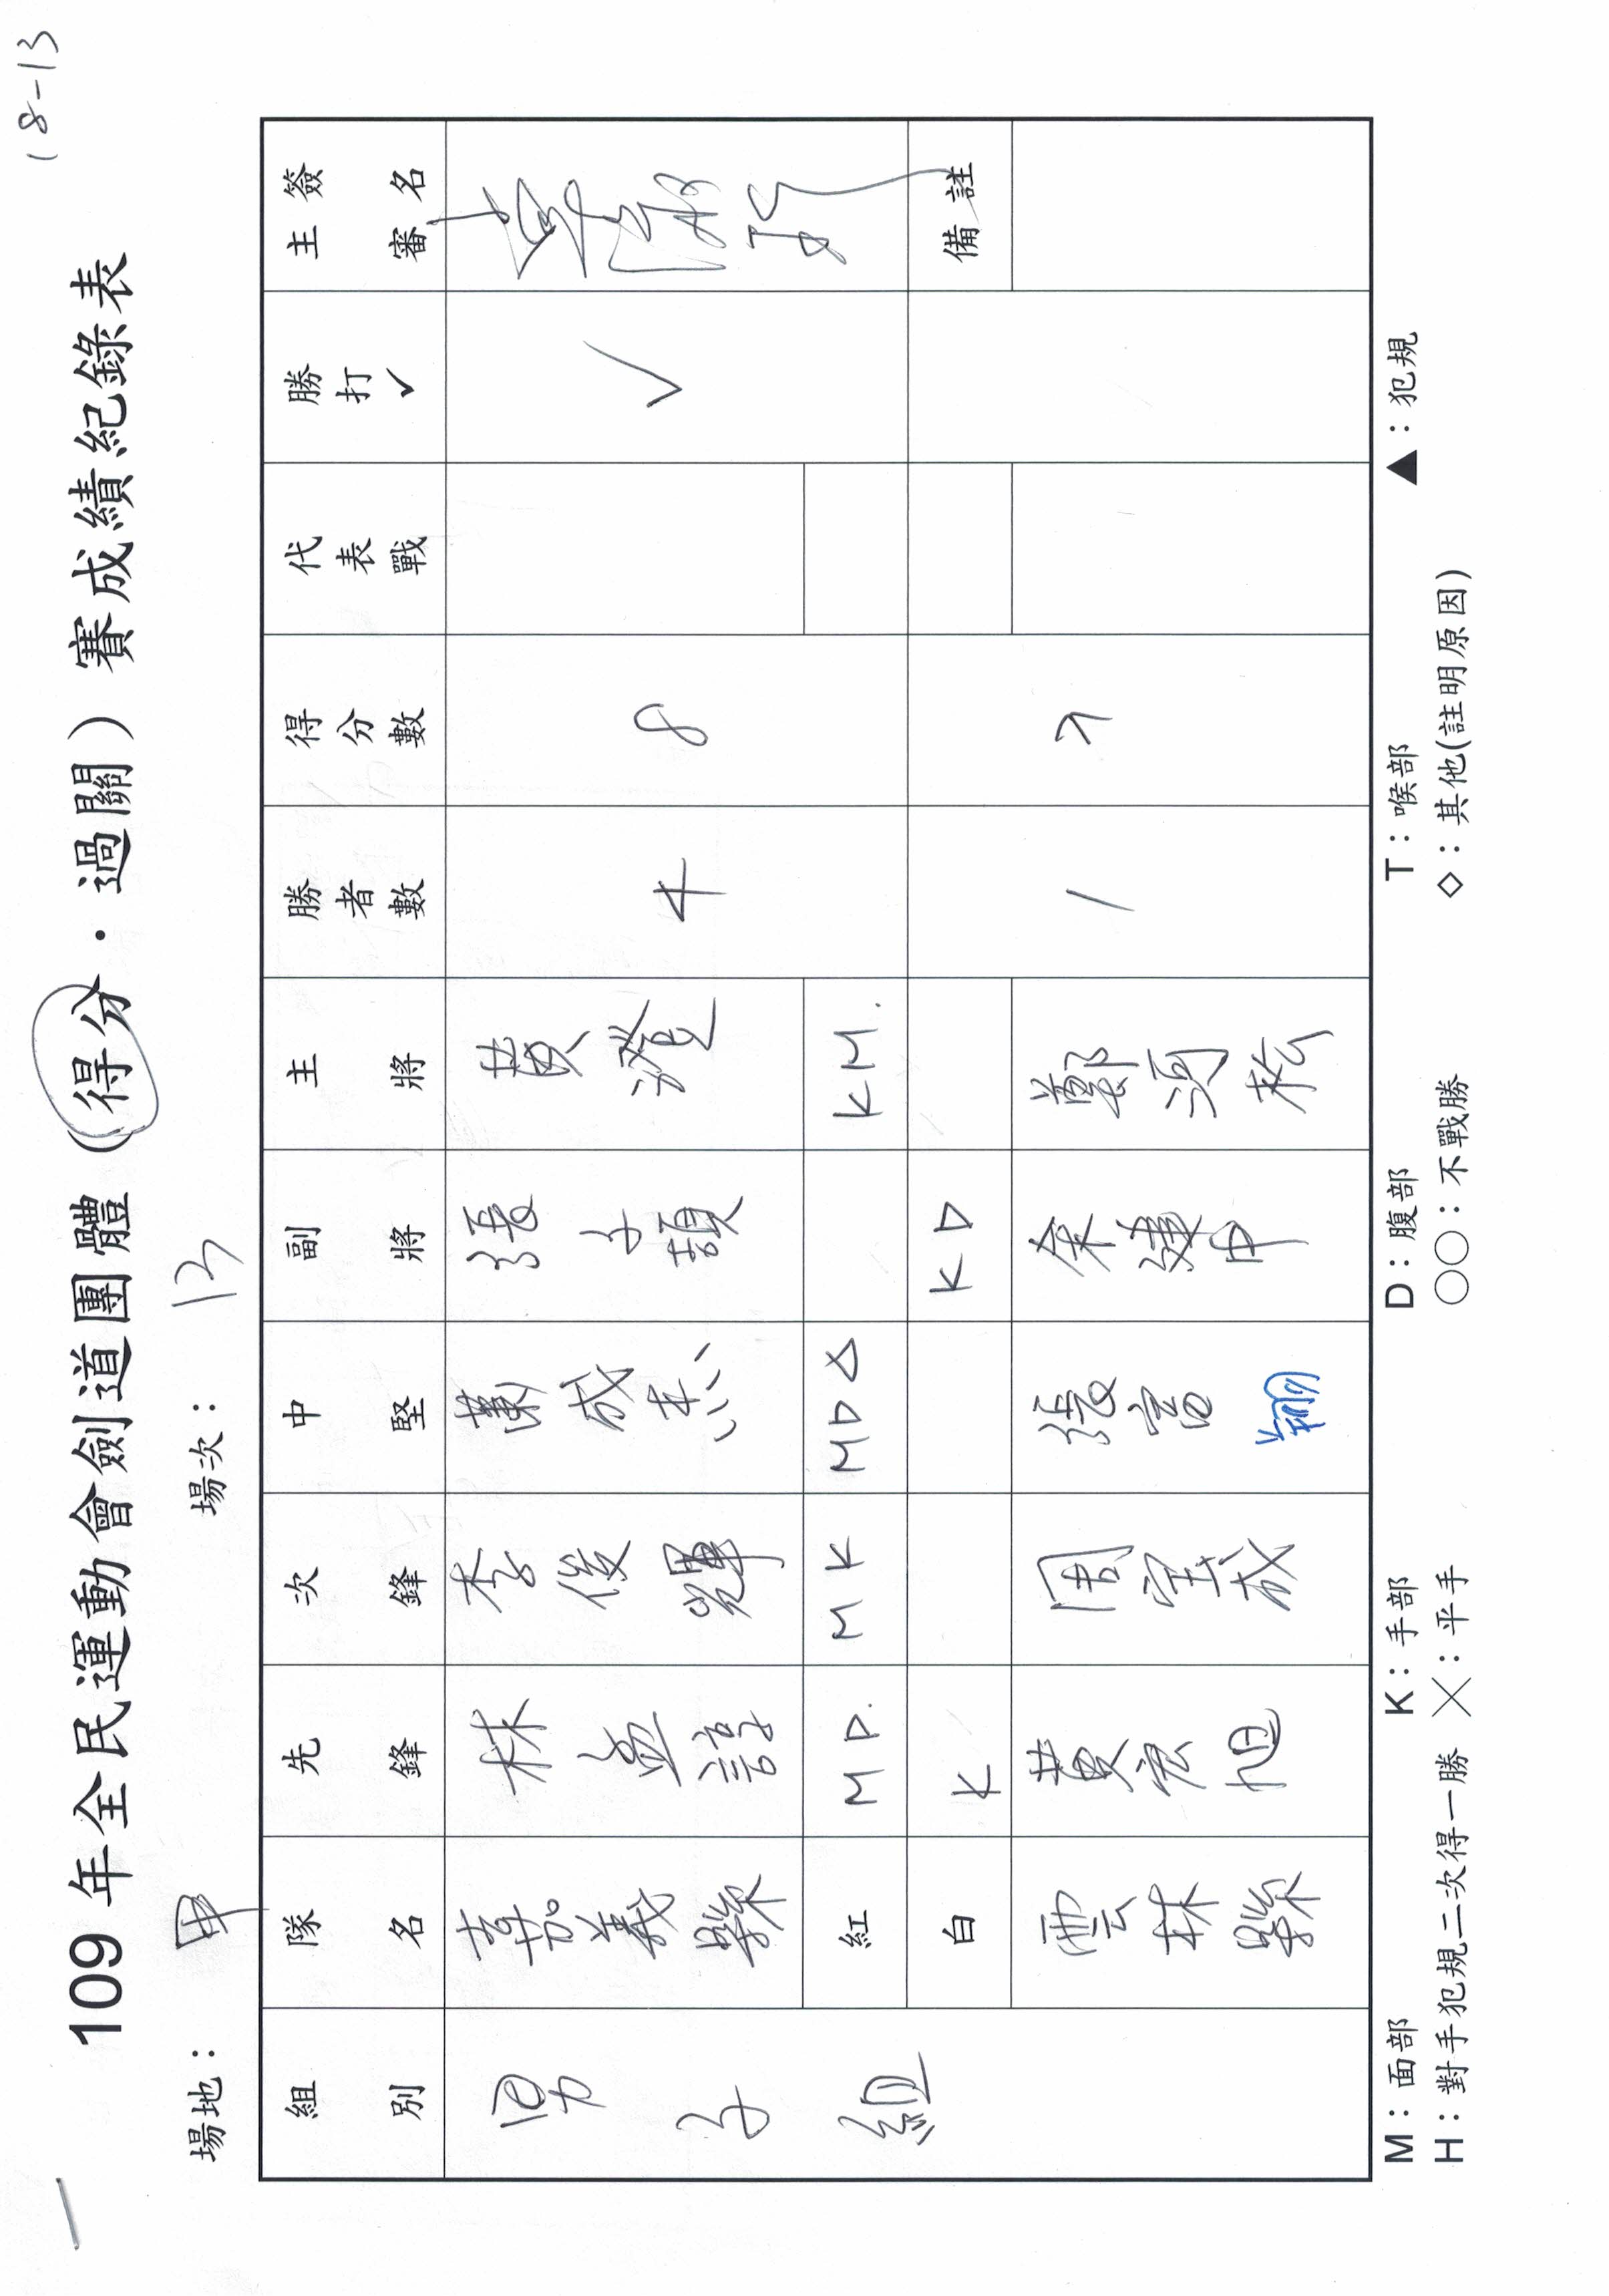 18-13
109年全民運動會劍道團體(得分·過關)賽成績紀錄表
場地：甲 場次：13
組別 隊名 先鋒 次鋒 中堅 副將 主將 勝者數 得分數 代表戰 勝打✓ 主審簽名
男子組 嘉義縣 林孟諄 李俊輝 張子頡 黃澄 4 8 ✓
紅 M D. M K M D △ K M.
白 K K D 備註
雲林縣 黃宏旭 周宝成 張富翔 余建中 鄭河松 1
M：面部 K：手部 D：腹部 T：喉部 ▲：犯規
H：對手犯規二次得一勝 ╳：平手 ○○：不戰勝 ◇：其他(註明原因)